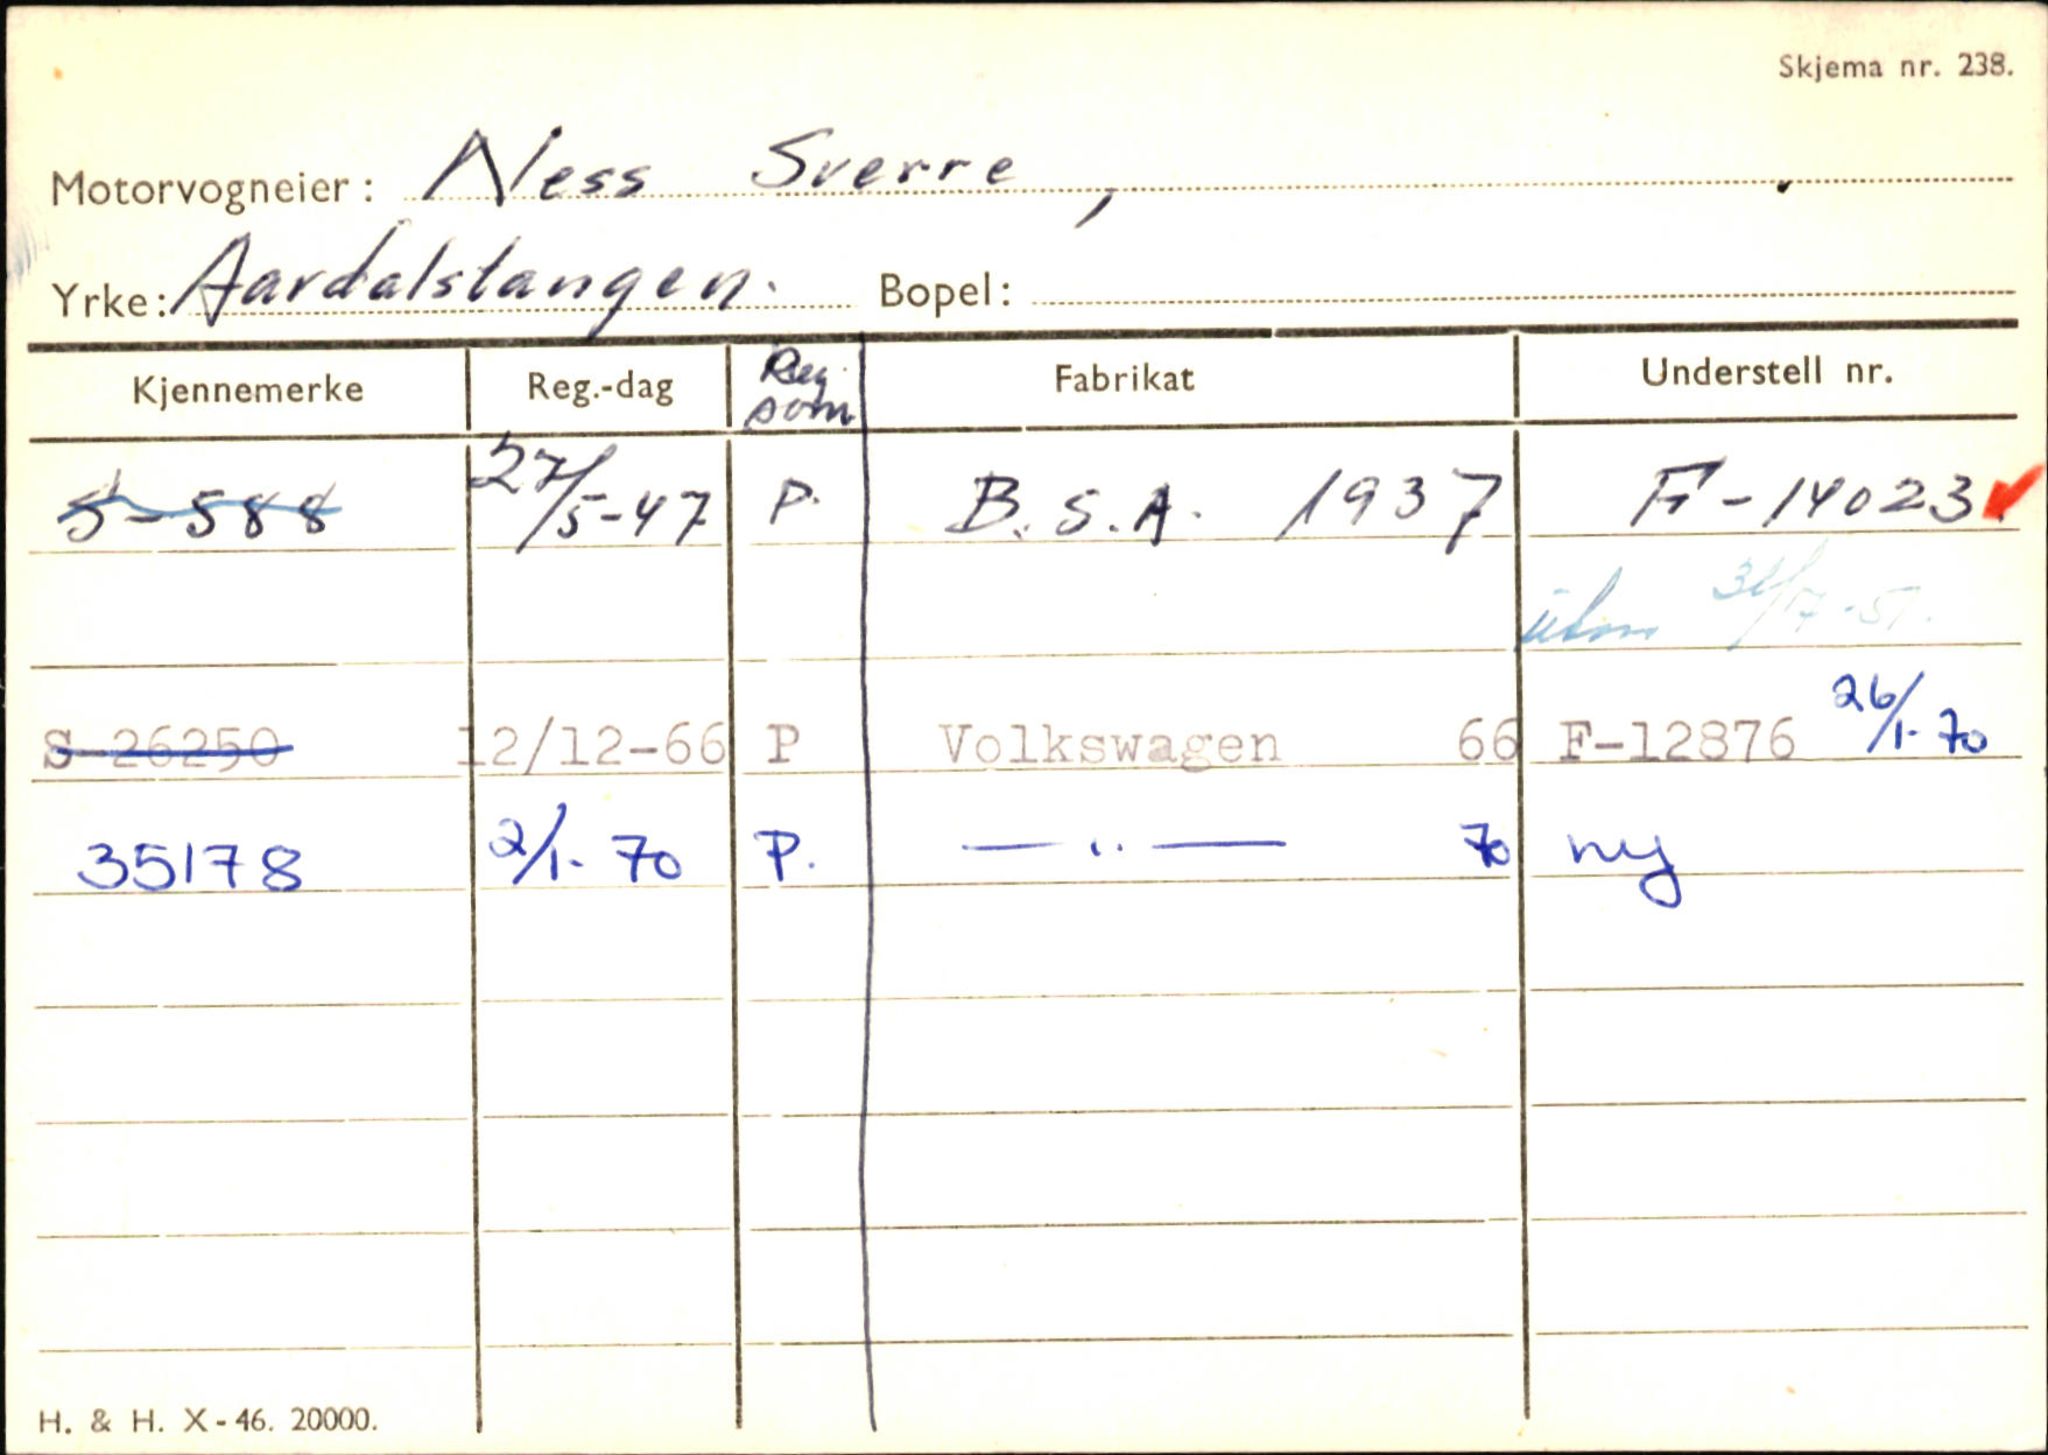 Skjema nr. 238.
Motorvogneier: Ness Sverre,
Yrke: Aardalstangen. Bopel:
Kjennemerke Reg.-dag Reg. som Fabrikat Understell nr.
S-588 27/5-47 P. B.S.A. 1937 F-14023
31/7-51.
S-26250 12/12-66 P Volkswagen 66 F-12876 26/1-70
35178 2/1-70 P. — " — 70 ny
H. & H. X-46. 20000.